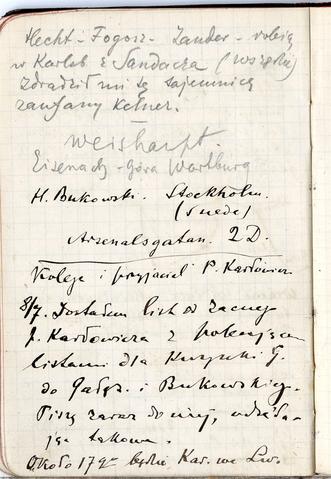 Hecht - Fogosz - Zander - robią
w Karlsb z Sandacza (wszędzie)
Zdradził mi tę tajemnicę
zaufany Kelner.
Weisharpt.
Eisenach - góra Wartburg
H. Bukowski. Stockholm.
(Suede)
Arsenalsgatan. 2 D.
Kolega i przyjaciel P. Karłowicz
8/7. Dostałem list od zacnego
J. Karłowicza z polecającymi
listami dla
do i Bukowskiego.
Piszę zaraz do niej,
jąc takowe.
Około 17go będzie Kar. we Lw.